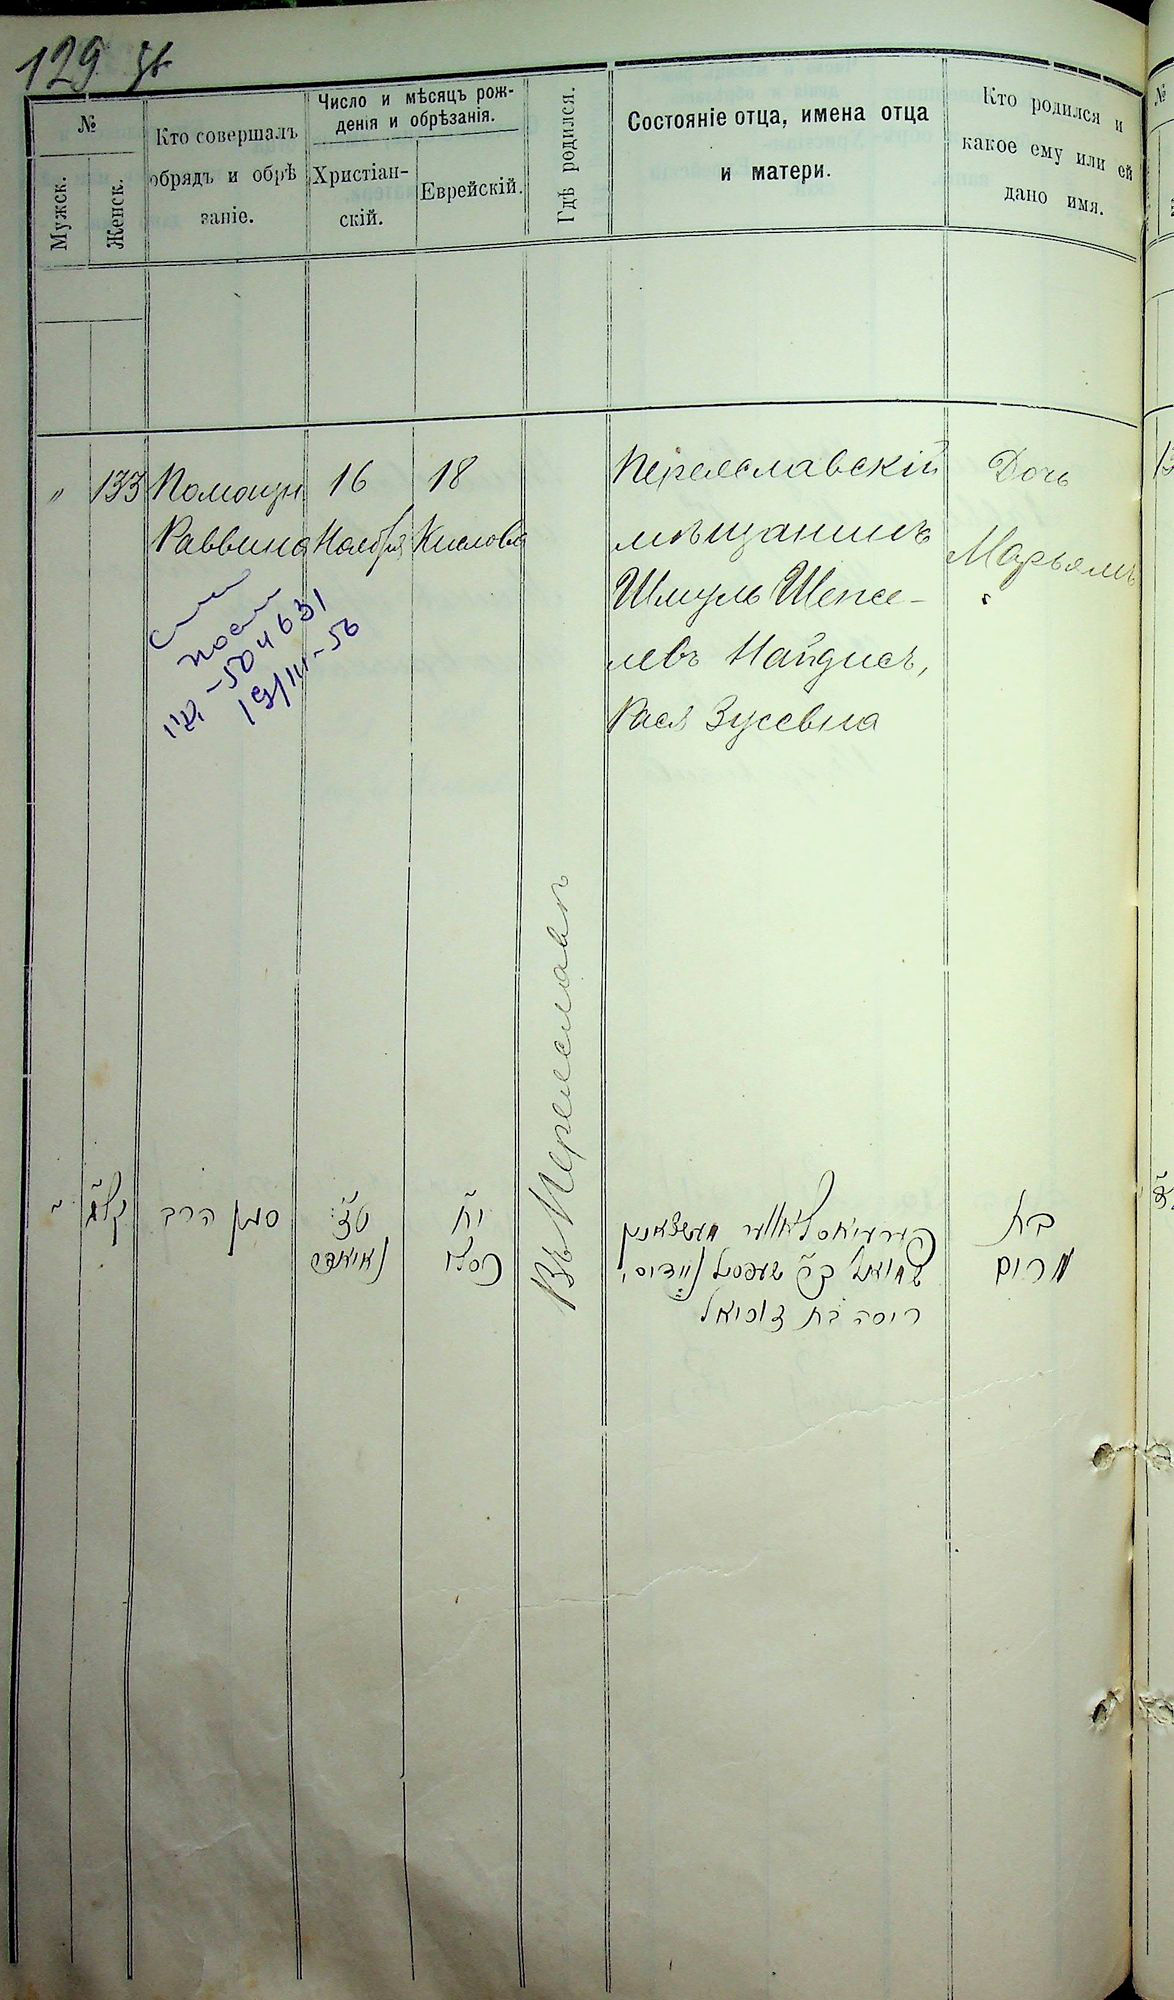 129
№
Мужск.
Женск.
Кто совершалъ
обрядъ и обрѣ
заніе.
Число и мѣсяцъ рож-
денія и обрѣзанія.
Христіан-
скій.
Еврейскій.
Гдѣ родился.
Состояніе отца, имена отца
и матери.
Кто родился и
какое ему или ей
дано имя.
" 133
Помощн
Раввина
16
Ноября
18
Кислова
Въ Переяславѣ
Переяславскій
мѣщанинъ
Шмуль Шепсе-
левъ Найдисъ,
Рася Зусевна
Дочь
Марьямъ
504631
19/III-56
" קל״ג
סגן הרב
ט״ז
נאיאבר
י״ח
כסלו
שמואל ב״ר שעפסיל ניידיס,
ריסה בת
בת
מרים
№